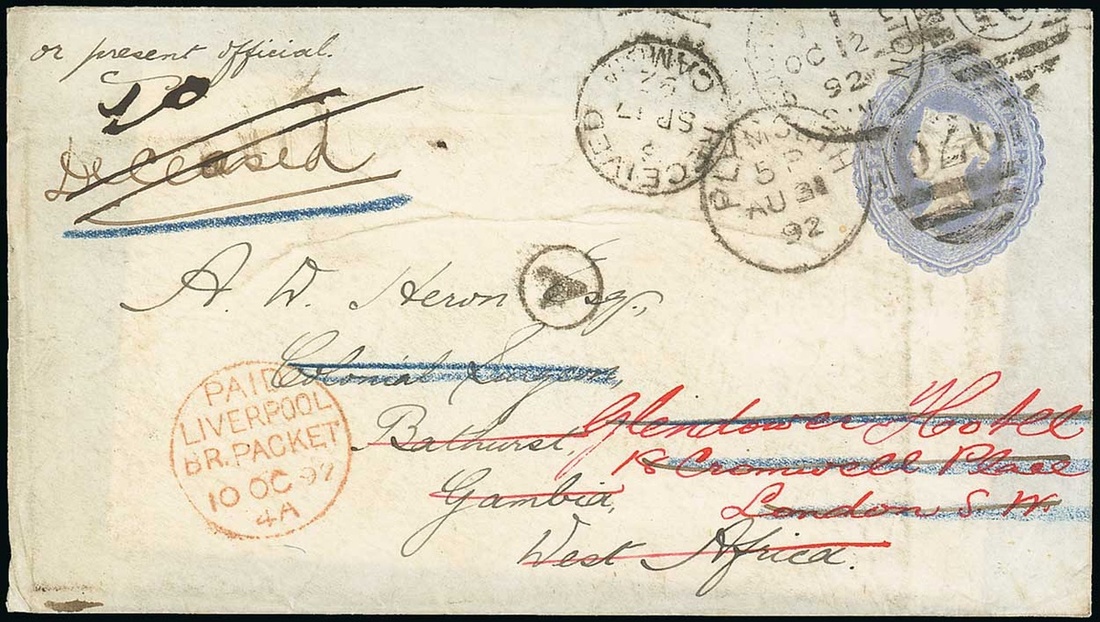 or present official.
To
Deceased
RECEIVED
SP 17
92
PLYMOUTH
5 P
AU 31
92
OC 12
92
620
A. W. Heron Esq.,
Colonial Surgeon,
Bathurst,
Gambia,
West Africa.
Glendower Hotel
18 Cromwell Place
London S. W.
PAID
LIVERPOOL
BR. PACKET
10 OC 92
4A